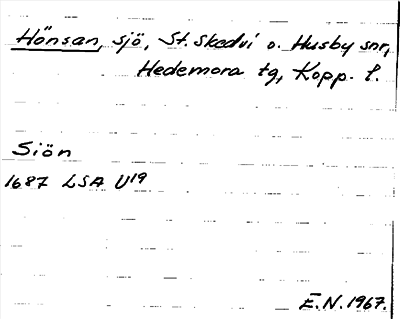 Hönsan, sjö, St. Skedvi o. Husby snr,
Hedemora tg, Kopp. l.
Siön
1687 LSA U19
E.N. 1967.